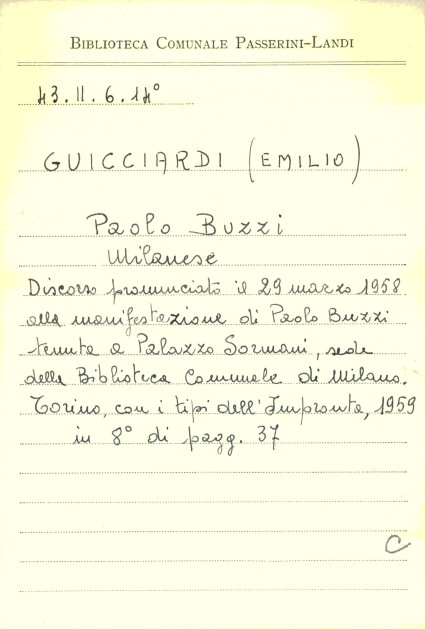 BIBLIOTECA COMUNALE PASSERINI-LANDI
43.II.6.14°
GUICCIARDI (EMILIO)
Paolo Buzzi
Milanese
Discorso pronunciato il 29 marzo 1958
alla manifestazione di Paolo Buzzi
tenuta a Palazzo Sormani, sede
della Biblioteca Comunale di Milano.
Torino, con i tipi dell'Impronta, 1959
in 8° di pagg. 37
C